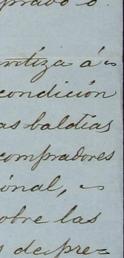 pravó o
ntiza á
condición
as baldías
compradores
ional,
obre las
s de pre=